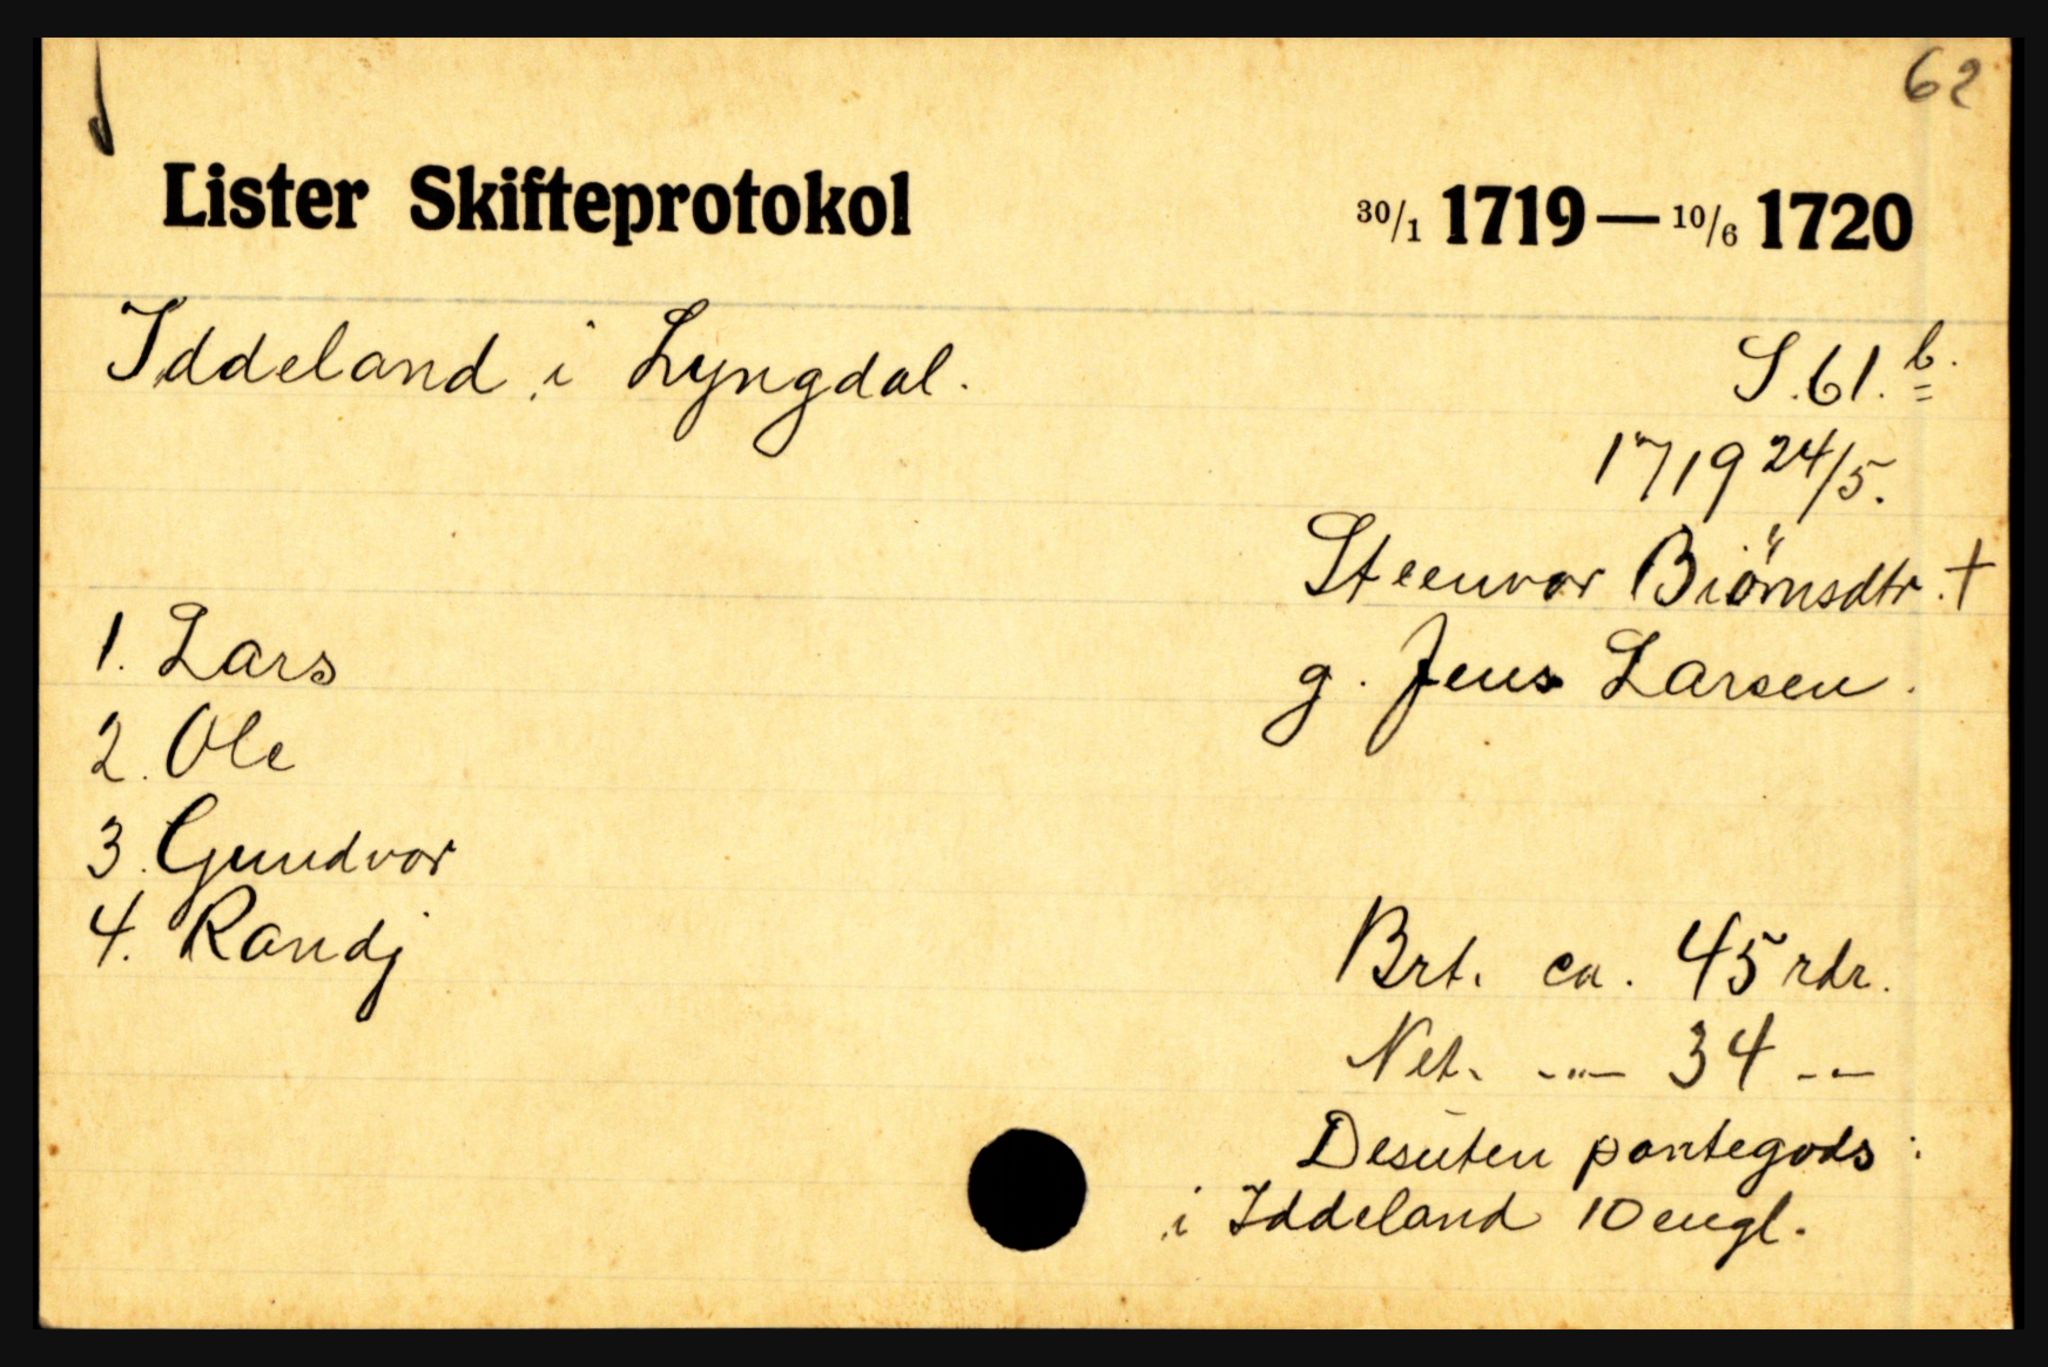 62
Lister Skifteprotokol 30/1 1719 — 10/6 1720
Iddeland i Lyngdal.
S. 61. b.
1719 24/5.
Steenvor Biörnsdtr. +
g. Jens Larsen.
1. Lars
2. Ole
3. Gundvor
4. Randj
Brt. ca. 45 rdr.
Net. -"- 34 --
Desuten pantegods :
i Iddeland 10 engl.